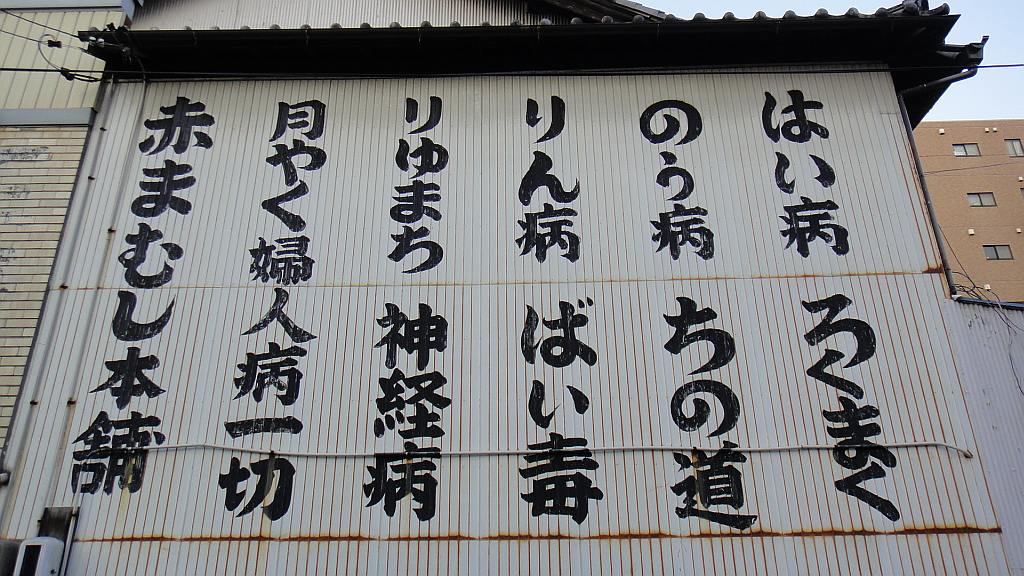 はい病 ろくまく
のう病 ちの道
りん病 ばい毒
りゆまち 神経病
月やく婦人病一切
赤まむし本舗